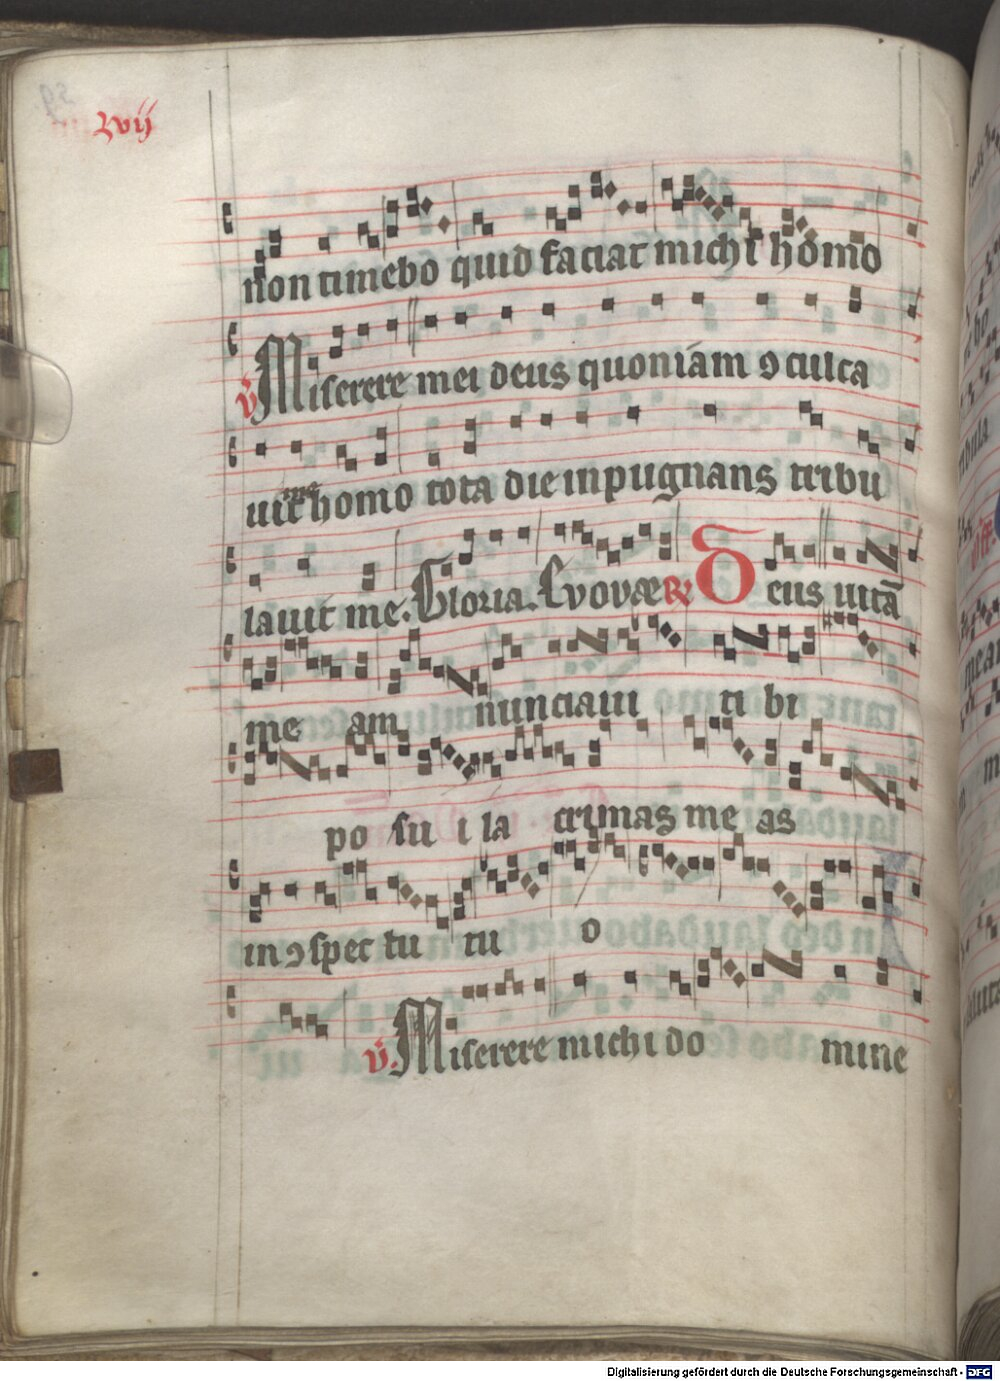 Lvij
non timebo quid faciat michi homo
℣ Miserere mei deus quoniam ꝯculca
uit me homo tota die inpugnans tribu
lauit me. Gloria. Evovae ℟ Deus uitā
me am nunciaui ti bi
po su i la crimas me as
in ꝯspec tu tu o
℣. Miserere michi do mine
Digitalisierung gefördert durch die Deutsche Forschungsgemeinschaft - DFG